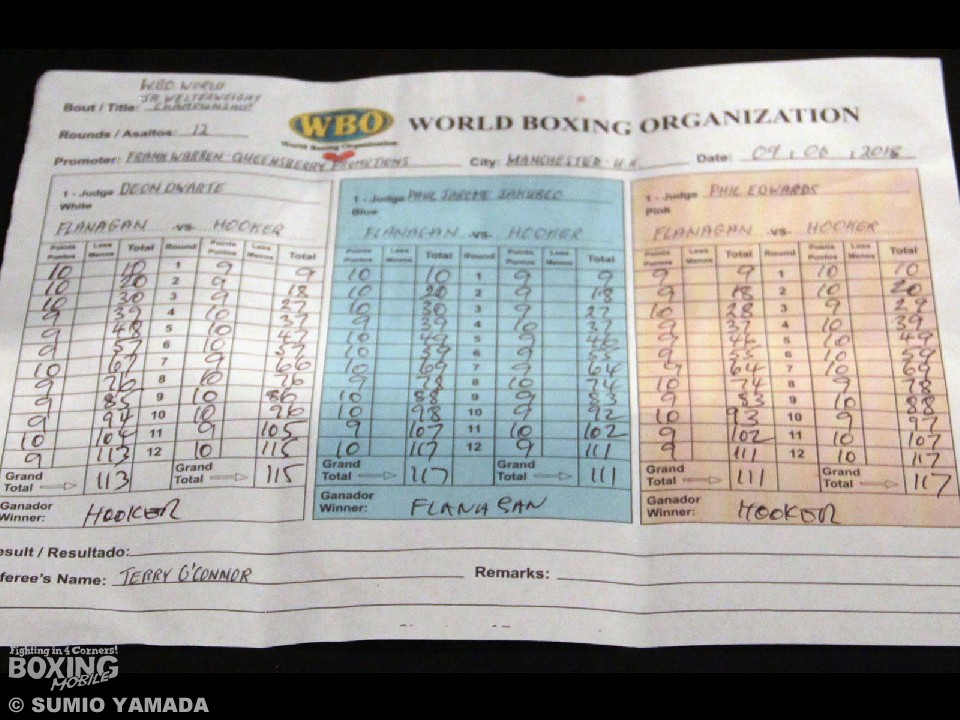 WBO WORLD
JR WELTERWEIGHT
Bout / Title: CHAMPIONSHIP
Rounds / Asaltos: 12
WBO
World Boxing Organization
WORLD BOXING ORGANIZATION
Promoter: FRANK WARREN - QUEENSBERRY PROMOTIONS City: MANCHESTER - U.K. Date: 09 , 06 , 2018
1 - Judge DEON DWARTE
White
FLANAGAN vs. HOOKER
Points Puntos Less Menos Total Round Points Puntos Less Menos Total
10 10 1 9 9
10 20 2 9 18
10 30 3 9 27
9 39 4 10 37
9 48 5 10 47
9 57 6 10 57
10 67 7 9 66
9 76 8 10 76
9 85 9 10 86
9 94 10 10 96
10 104 11 9 105
9 113 12 10 115
Grand Total 113 Grand Total 115
Ganador
Winner: HOOKER
1 - Judge PAUL JAROME JAKUBCO
Blue
FLANAGAN vs. HOOKER
Points Puntos Less Menos Total Round Points Puntos Less Menos Total
10 10 1 9 9
10 20 2 9 18
10 30 3 9 27
9 39 4 10 37
10 49 5 9 46
10 59 6 9 55
10 69 7 9 64
9 78 8 10 74
10 88 9 9 83
10 98 10 9 92
9 107 11 10 102
10 117 12 9 111
Grand Total 117 Grand Total 111
Ganador
Winner: FLANAGAN
1 - Judge PHIL EDWARDS
Pink
FLANAGAN vs. HOOKER
Points Puntos Less Menos Total Round Points Puntos Less Menos Total
9 9 1 10 10
9 18 2 10 20
10 28 3 9 29
9 37 4 10 39
9 46 5 10 49
9 55 6 10 59
9 64 7 10 69
10 74 8 9 78
9 83 9 10 88
10 93 10 9 97
9 102 11 10 107
9 111 12 10 117
Grand Total 111 Grand Total 117
Ganador
Winner: HOOKER
esult / Resultado:
feree's Name: TERRY O'CONNOR Remarks:
Fighting in 4 Corners!
BOXING
MOBILE
© SUMIO YAMADA